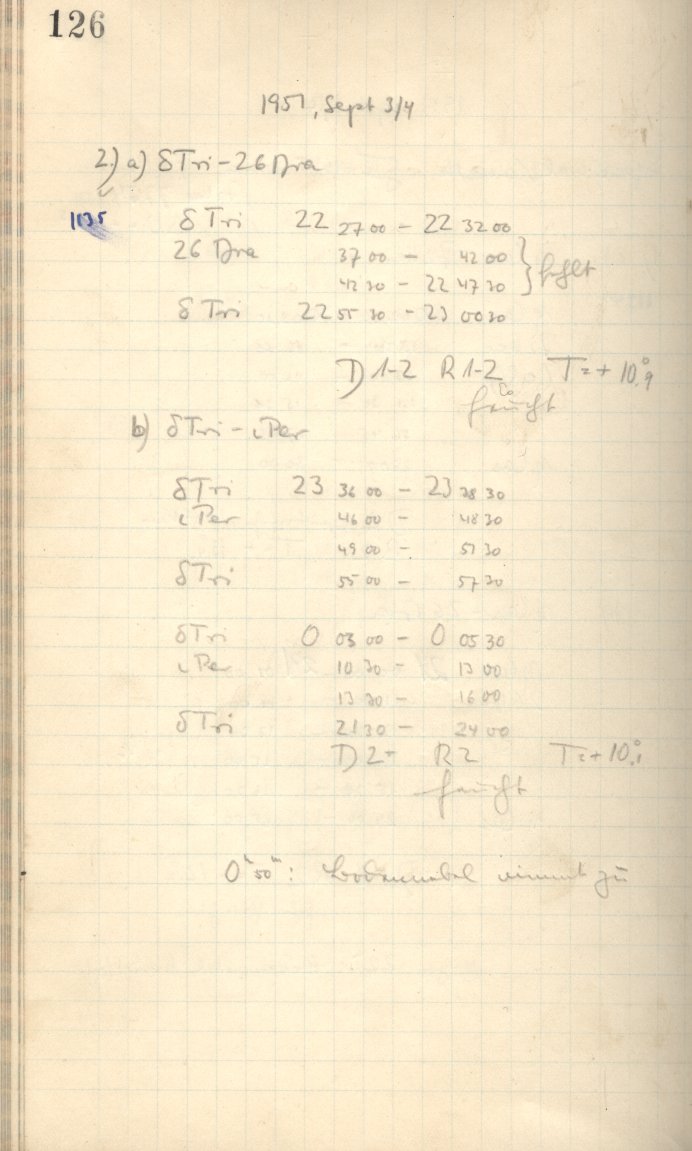 126
1951, Sept 3/4
2) a) δTri – 26 Dra
1135 δ Tri 22 27 00 – 22 32 00
26 Dra 37 00 – 42 00
42 30 – 22 47 30 } fehlt
δ Tri 22 55 30 – 23 00 30
D 1-2 R 1-2 T = + 10,°9
feucht
b) δTri – ι Per
δTri 23 36 00 – 23 38 30
ι Per 46 00 – 48 30
49 00 – 51 30
δTri 55 00 – 57 30
δTri 0 03 00 – 0 05 30
ι Per 10 30 – 13 00
13 30 – 16 00
δTri 21 30 – 24 00
D 2- R 2 T = + 10,°1
feucht
0ʰ50ᵐ: Bodennebel nimmt zu